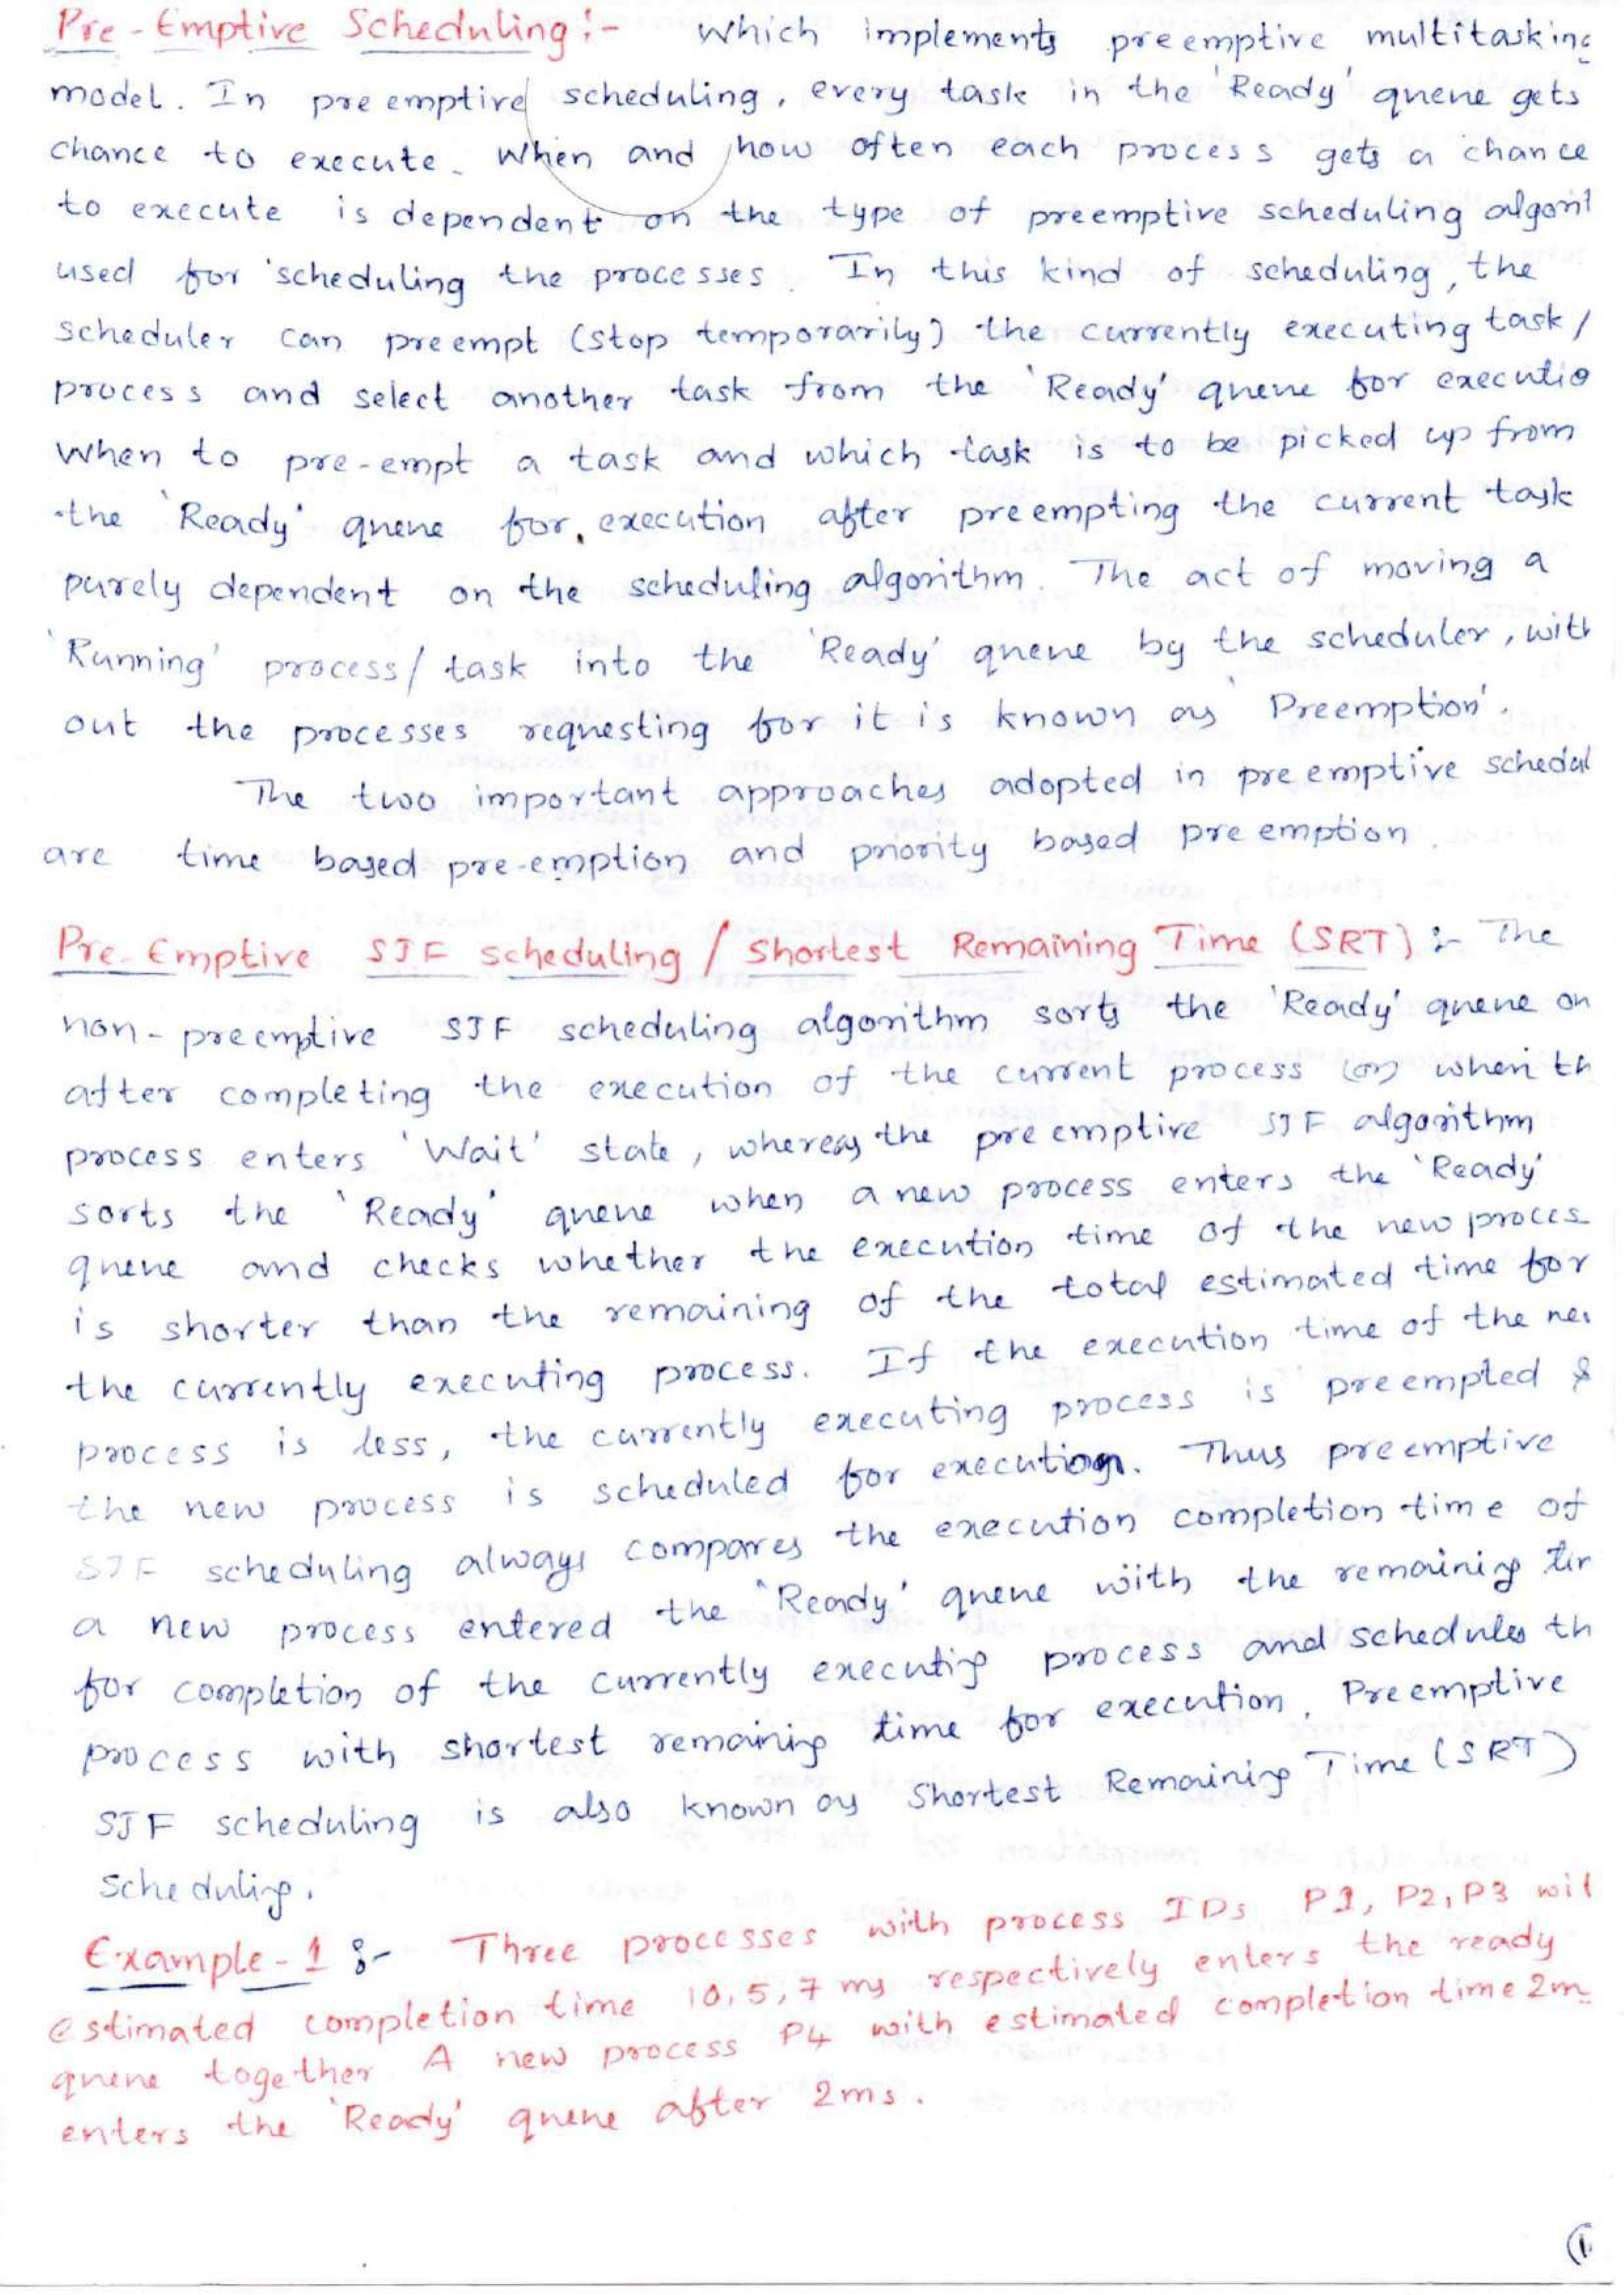 Pre-Emptive Scheduling :- Which implements preemptive multitasking
model. In preemptive scheduling, every task in the 'Ready' queue gets
chance to execute. When and how often each process gets a chance
to execute is dependent on the type of preemptive scheduling algorit
used for scheduling the processes. In this kind of scheduling, the
scheduler can preempt (stop temporarily) the currently executing task/
process and select another task from the 'Ready' queue for executio
When to pre-empt a task and which task is to be picked up from
the 'Ready' queue for execution after preempting the current task
purely dependent on the scheduling algorithm. The act of moving a
'Running' process/task into the 'Ready' queue by the scheduler, with
out the processes requesting for it is known as 'Preemption'.
The two important approaches adopted in preemptive schedul
are time based pre-emption and priority based preemption.
Pre-Emptive SJF scheduling / Shortest Remaining Time (SRT) :- The
non-preemptive SJF scheduling algorithm sorts the 'Ready' queue on
after completing the execution of the current process (or) when th
process enters 'Wait' state, whereas the preemptive SJF algorithm
sorts the 'Ready' queue when a new process enters the 'Ready'
queue and checks whether the execution time of the new proces
is shorter than the remaining of the total estimated time for
the currently executing process. If the execution time of the ne
process is less, the currently executing process is preempted &
the new process is scheduled for execution. Thus preemptive
SJF scheduling always compares the execution completion time of
a new process entered the 'Ready' queue with the remaining tim
for completion of the currently executing process and schedules th
process with shortest remaining time for execution. Preemptive
SJF scheduling is also known as Shortest Remaining Time (SRT)
Scheduling.
Example-1 :- Three processes with process IDs P1, P2, P3 wit
estimated completion time 10, 5, 7 ms respectively enters the ready
queue together A new process P4 with estimated completion time 2m
enters the 'Ready' queue after 2ms.
(1